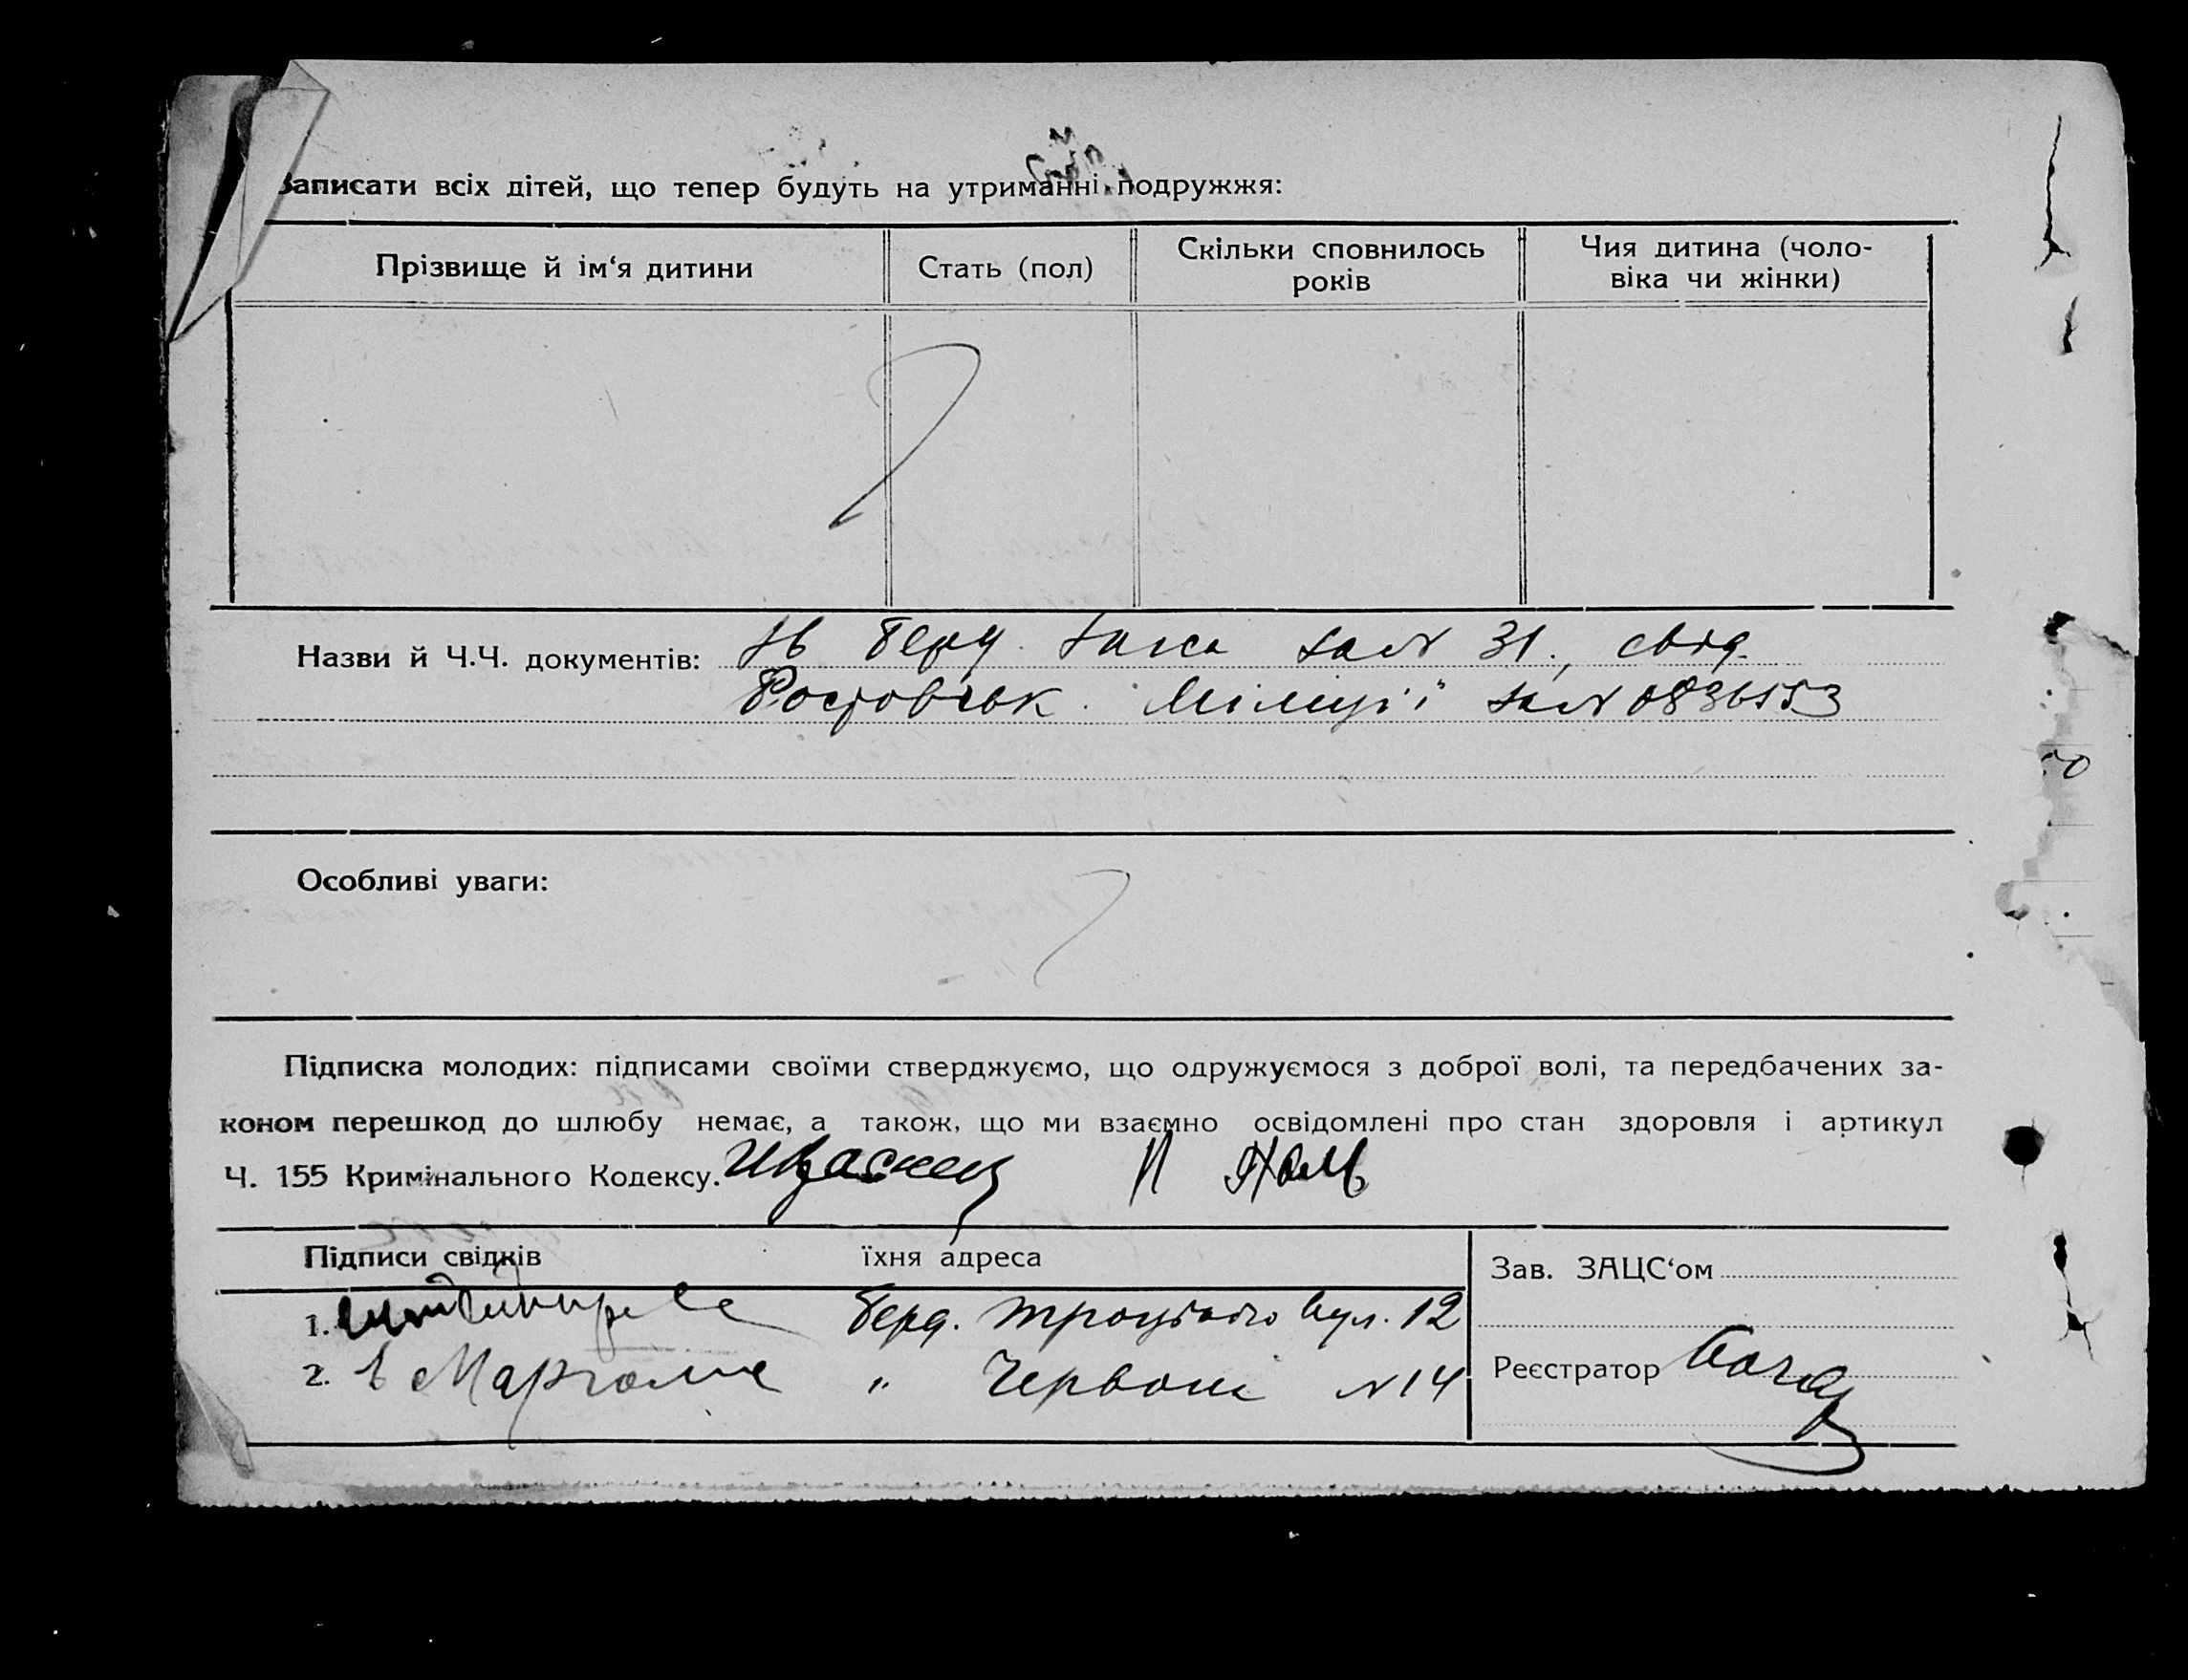 Записати всіх дітей, що тепер будуть на утриманні подружжя:
Прізвище й ім‘я дитини
Стать (пол)
Скільки сповнилось років
Чия дитина (чоловіка чи жінки)
Назви й Ч.Ч. документів: Берд. за № 31., свід.
Ростовськ. Міліції за № 0836553
Особливі уваги:
Підписка молодих: підписами своїми стверджуємо, що одружуємося з доброї волі, та передбачених за-
коном перешкод до шлюбу немає, а також, що ми взаємно освідомлені про стан здоровля і артикул
Ч. 155 Кримінального Кодексу.
Підписи свідків їхня адреса
Зав. ЗАЦС‘ом
1. Берд. Троцького вул. 12
2. " Червона № 14
Реєстратор